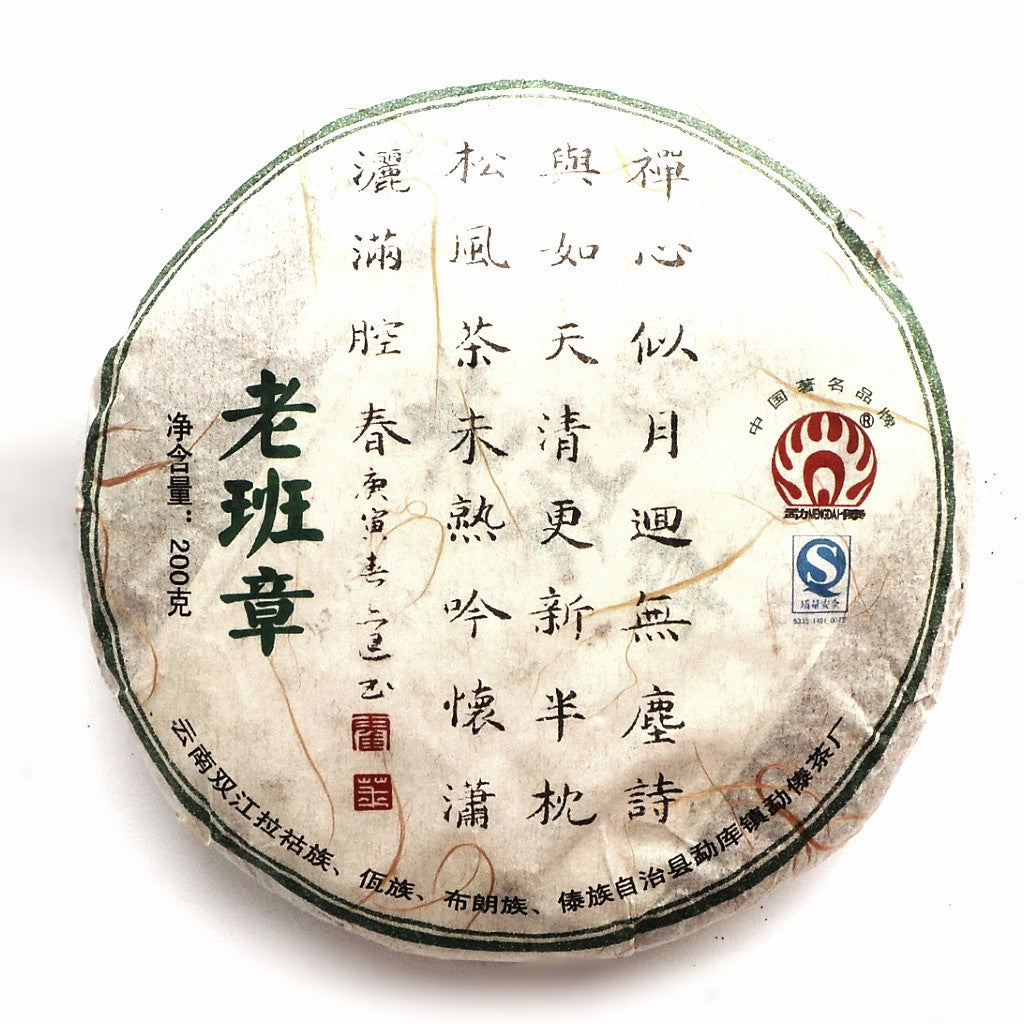 禪心似月迥無塵詩
與如天清更新半枕
松風茶未熟吟懷瀟
灑滿腔春庚寅春
老班章
净含量：200克
中国著名品牌
®
勐傣MENGDAI
S
质量安全
云南双江拉祜族、佤族、布朗族、傣族自治县勐库镇勐傣茶厂